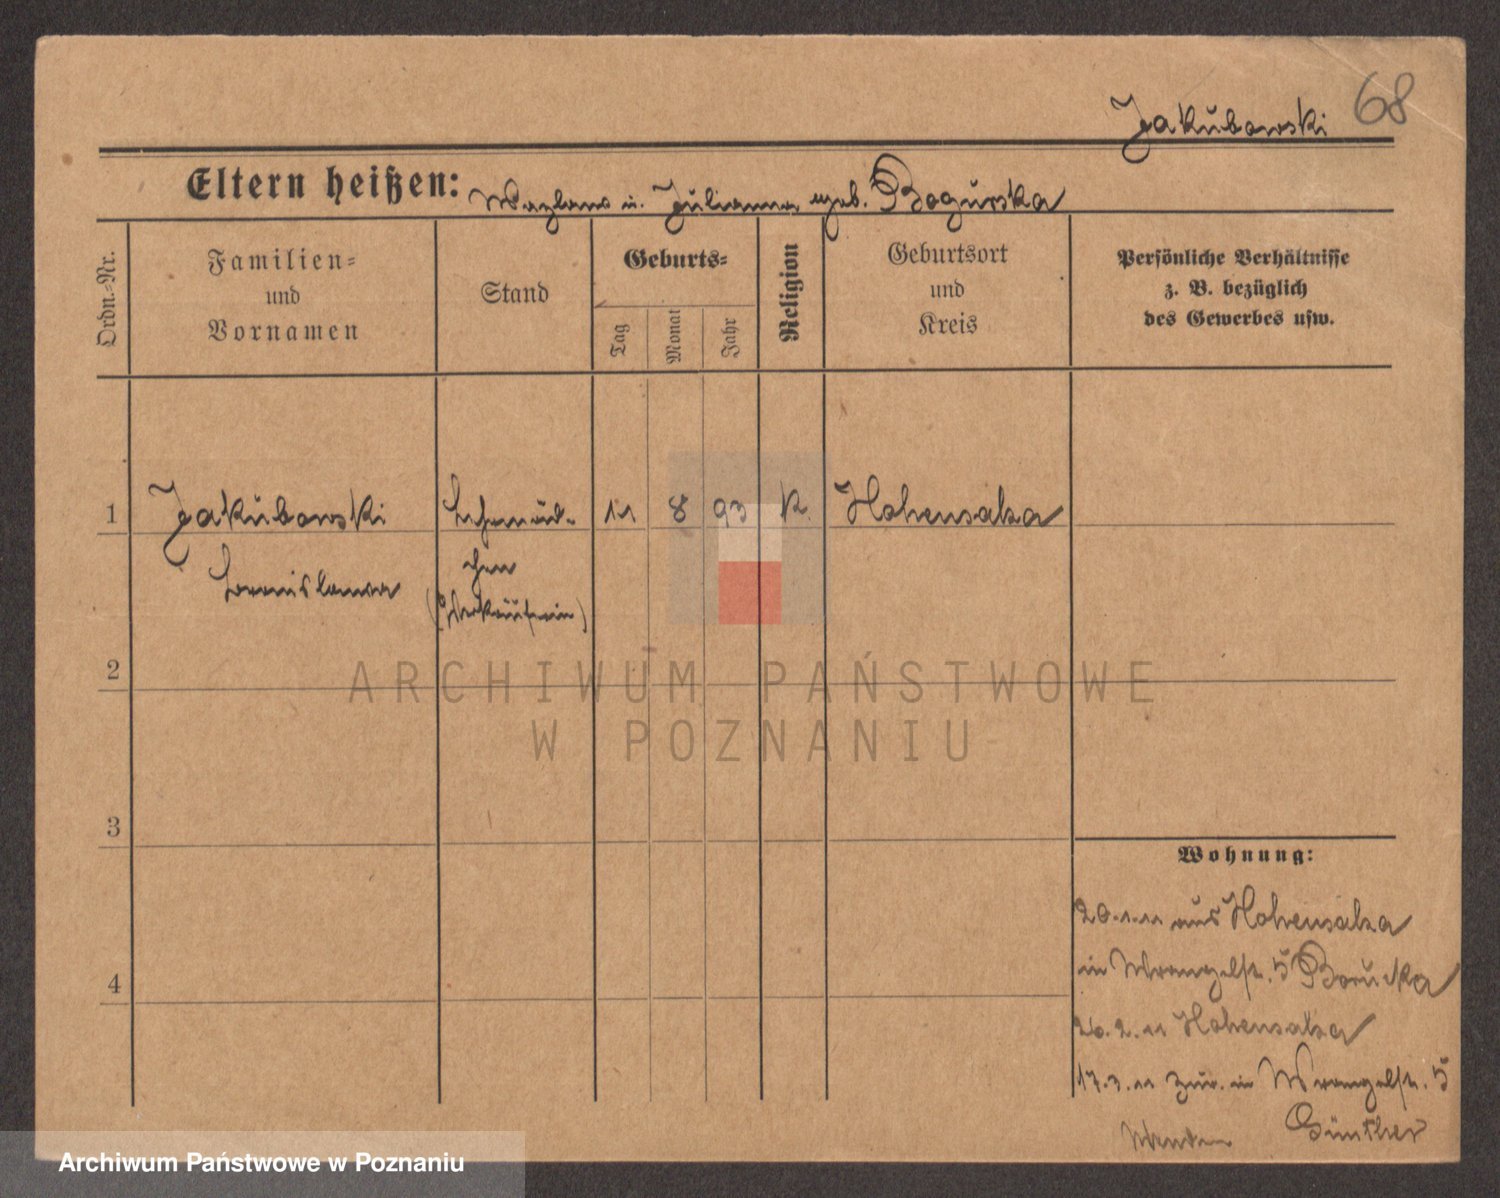 68
Jakubowski
Eltern heißen: Wazlaus u. Julianna geb. Bogurska
Ordn.-Nr.
Familien-
und
Vornamen
Stand
Geburts-
Tag
Monat
Jahr
Religion
Geburtsort
und
Kreis
Persönliche Verhältnisse
z. B. bezüglich
des Gewerbes usw.
1 Jakubowski Lehrmäd- 11 8 93 K. Hohensalza
Bronislawa chen
(Verkäuferin)
2
3
4
Wohnung:
20.1.11 aus Hohensalza
in Wrangelstr. 5 Borucka
26.2.11 Hohensalza
17.3.11 zur. in Wrangelstr. 5
Günther
ARCHIWUM PAŃSTWOWE
W POZNANIU
Archiwum Państwowe w Poznaniu